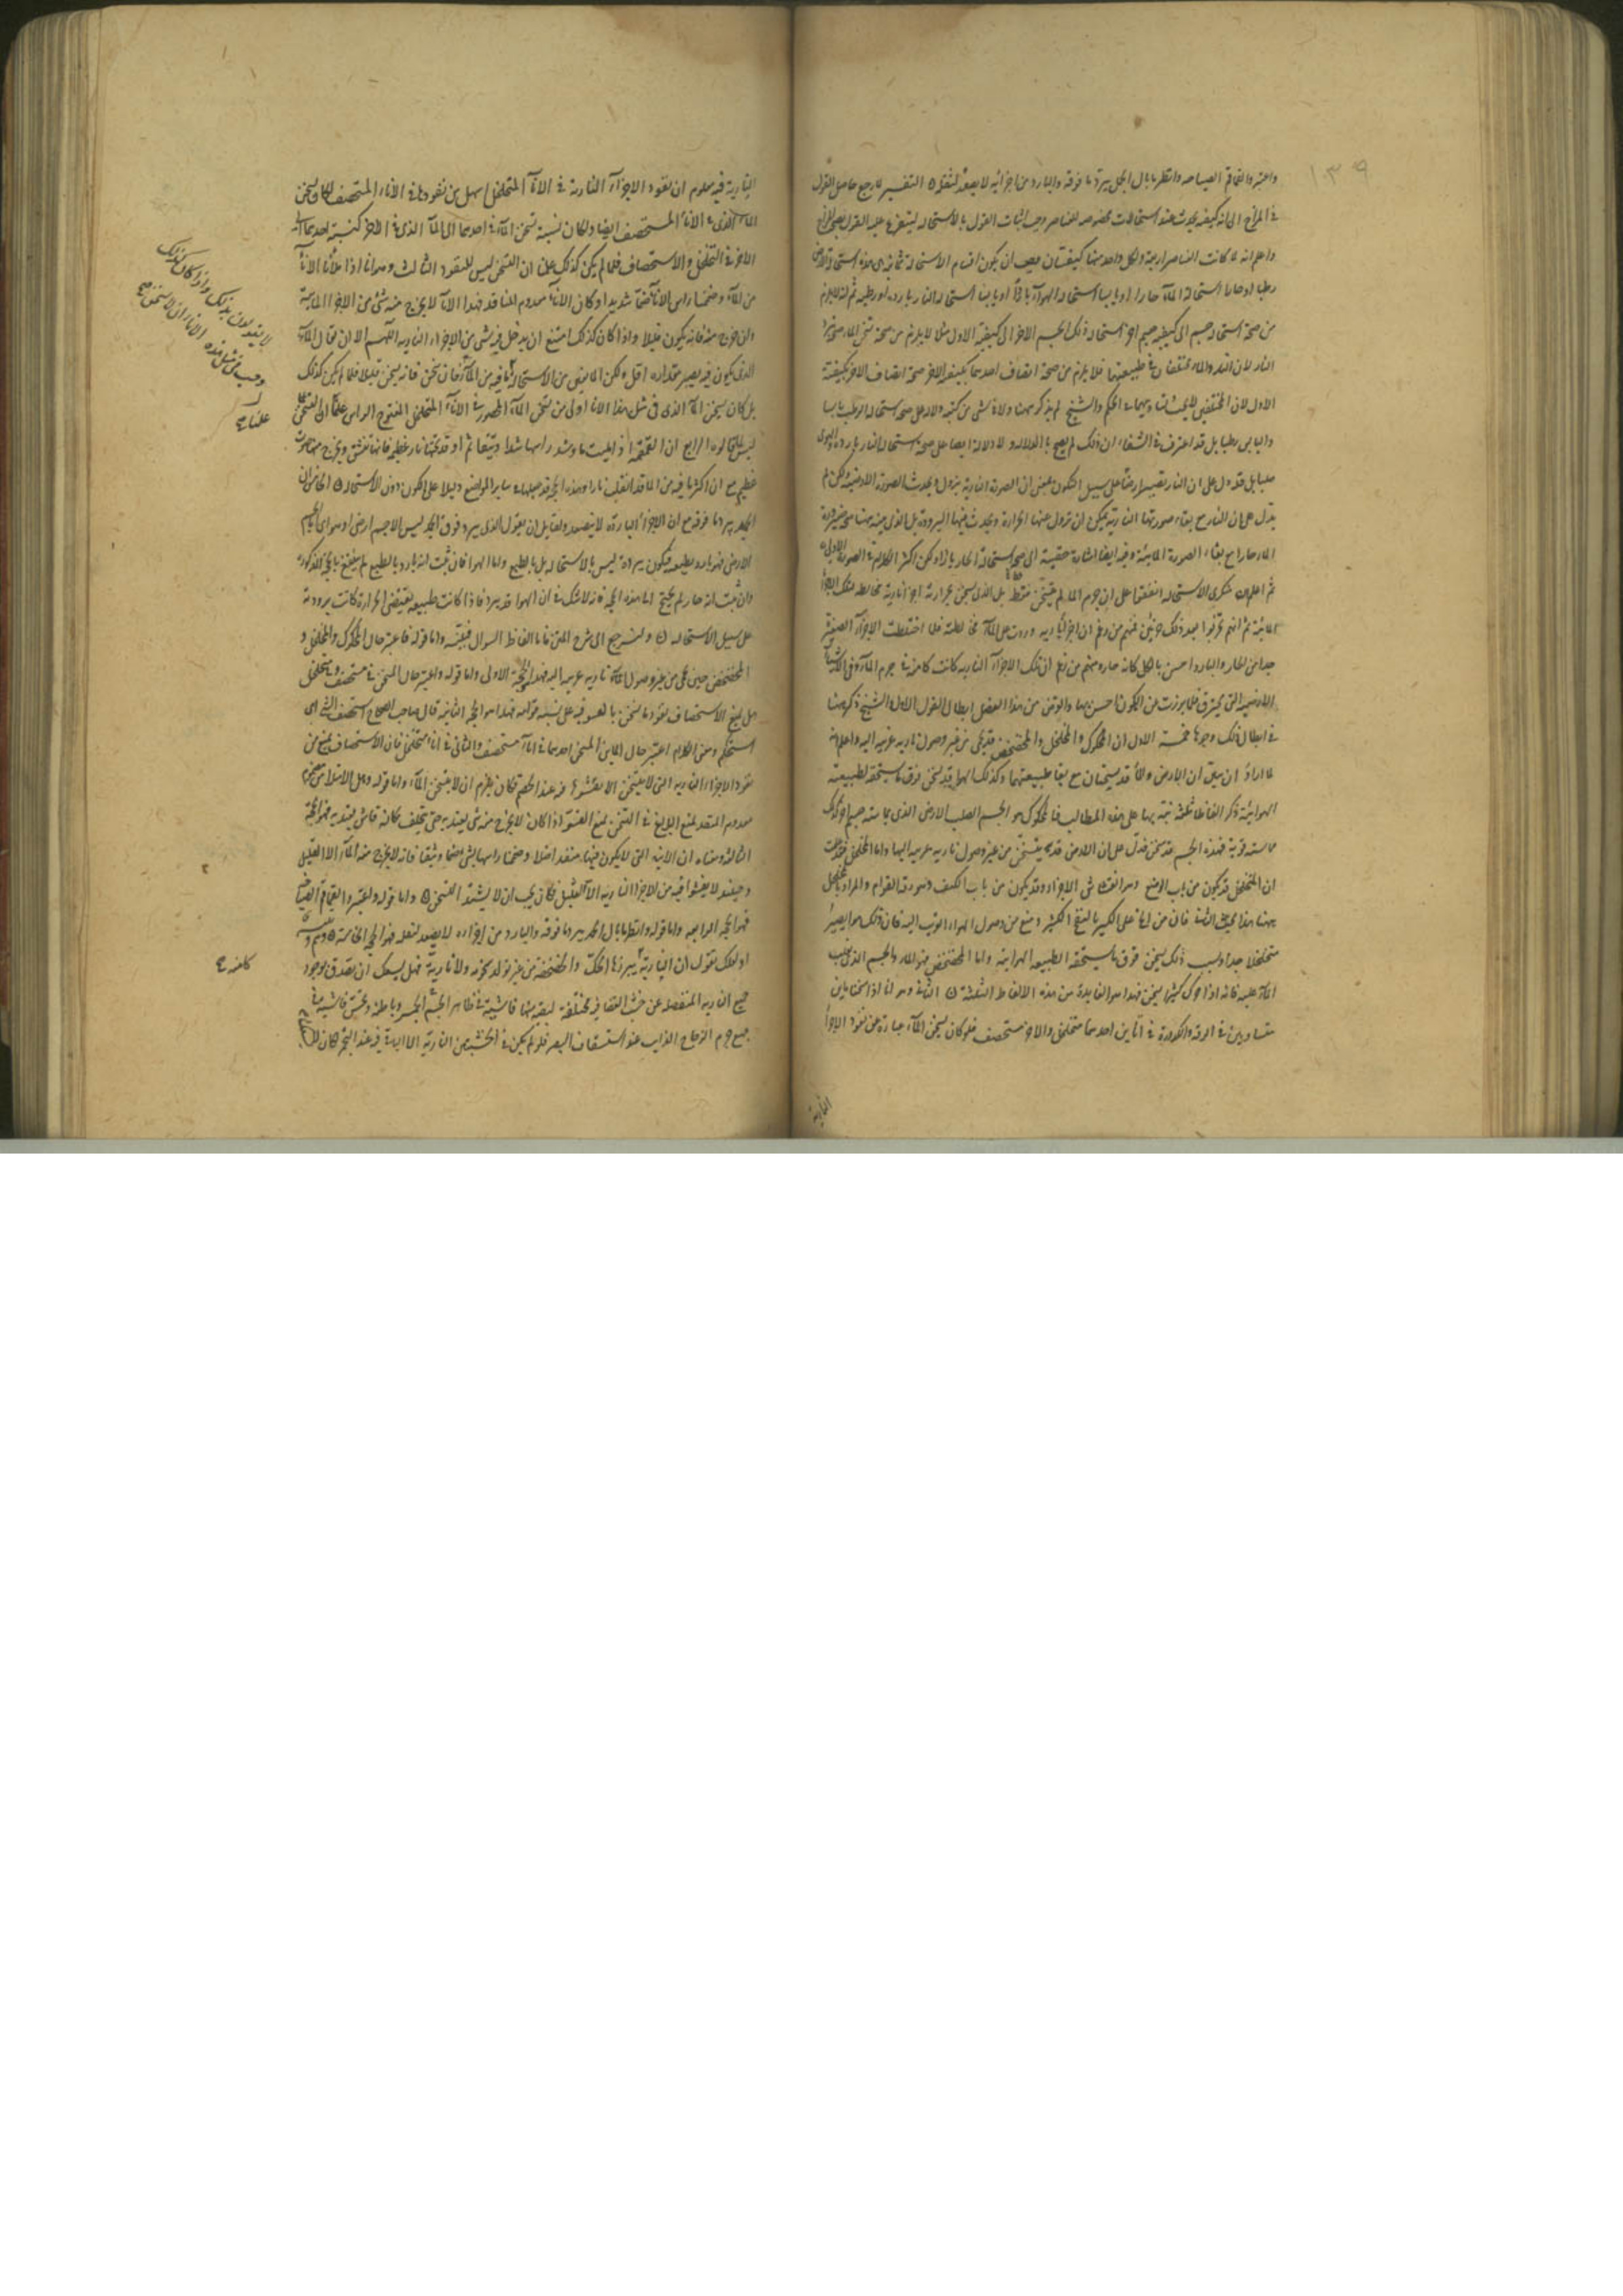 ١٣٩
واعتبر والقماقم الصياحة وانظر ما بال الجمد يبرد ما فوقه والبارد من اجزائه لا يصعد لثقله التفسير لما رجع حاصل القول
في المزاج الى انه كيفية يحدث عند استحالات مخصوصه للعناصر وجب اثبات القول بالاستحالة ليتفرع عليه القول بصحة المزاج
واعلم انه لما كانت العناصر اربعة ولكل واحد منها كيفيتان وجب ان يكون اقسام الاستحالة ثمانية
رطبا او حارا استحالة الماء حارا او يابسا استحالة الهواء باردا او يابسا استحالة النار باردة او رطبة ثم انه لا يلزم
من صحة استحالة جسم الى كيفية جسم اخر استحالة ذلك الجسم الاخر الى كيفية الاول مثلا لا يلزم من صحة تسخن الماء صحة تبرد
النار لان النار والماء مختلفان في طبيعتهما فلا يلزم من صحة اتصاف احدهما بكيفية الاخر صحة اتصاف الاخر بكيفية
الاول لان المختلفين لا يجب تساويهما في الحكم والشيخ لم يذكر ههنا ولا في شئ من كتبه ولا دل على صحة استحالة الرطب يابسا
واليابس رطبا بل قد اعترف في الشفاء ان ذلك لم يصح بالدلالة ولا دلالة ايضا على صحة استحالة النار باردة
بل قد دل على ان النار تصير ارضا على سبيل التكون بمعنى ان الصورة النارية يزول ويحدث الصورة الارضية ولكن لم
يدل على ان النار مع بقاء صورتها النارية يمكن ان تزول عنها الحرارة ويحدث فيها البرودة بل الذي بينه ههنا صحة صيرورة
الماء حارا مع بقاء الصورة المائية وفيه ايضا اشارة خفيفة الى صحة استحالة الحار باردا ولكن اكثر الكلام في الصورة الاولى
ثم اعلم ان منكري الاستحالة اتفقوا على ان جوهر الماء لم يتسخن فقط بل الذي يسخن بحرارته اجزاء نارية مخالطة لتلك الاجزاء
المائية ثم انهم تفرقوا بعد ذلك حزبين فمنهم من زعم ان اجزاء نارية وردت على الماء فخالطته فلما اختلطت الاجزاء الصغيرة
جدا من الحار والبارد احس بالكل كانه حار ومنهم من زعم ان تلك الاجزاء النارية كانت كامنة في جوهر الماء وفي الاشياء
الارضية التي يحترق فلما برزت من الكمون احس بها والغرض من هذا الفصل ابطال القول الاول والشيخ ذكر ههنا
في ابطال ذلك وجوها خمسة الاول ان المحكوك والمخلخل والمخضخض قد يحمى من غير وصول نارية غريبة اليه واعلم انه
لما اراد ان يبين ان الارض والماء قد يسخنان مع بقاء طبيعتهما وكذلك الهواء قد يسخن فوق ما يستحقه لطبيعته
الهوائية ذكر الفاظا ثلثة نبه بها على هذه المطالب فالمحكوك هو الجسم الصلب الارضي الذي يماسه جسم اخر كذلك
مماسة قوية فهذه الجسم قد يسخن فدل على ان الارض قد يتسخن من غير وصول نارية غريبة اليها واما المخلخل فقد عرفت
ان التخلخل قد يكون من باب الوضع وهو انفشاش الاجزاء وقد يكون من باب الكيف وهو رقة القوام والمراد بالتخلخل
ههنا هذا المعنى الثاني فان من الح على الكير بالنفخ الكثير ومنع من وصول الهواء الغريب اليه فان ذلك الهواء يصير
متخلخلا جدا وبسبب ذلك يسخن فوق ما يستحقه الطبيعة الهوائية واما المخضخض فهو الماء والجسم الذي يغلب
الماء عليه فانه اذا حرك كثيرا يسخن فهذا هو الفايدة من هذه الالفاظ الثلثة الثاني وهو انا اذا سخنا مائين
متساويين في الرقة والكدورة في انائين احدهما متخلخل والاخر مستحصف فلو كان يسخن الماء عبارة عن نفوذ الاجزاء
النارية
النارية فيه معلوم ان نفوذ الاجزاء النارية في الاناء المتخلخل اسهل من نفوذها في الاناء المستحصف لكان يسخن
الماء الذي في الاناء المستحصف ايضا ولكان نسبة تسخن الماء في احدهما الى الماء الذي في الاخر كنسبة احدهما الى
الاخر في التخلخل والاستحصاف فلما لم يكن كذلك علمنا ان التسخن ليس للنفوذ الثالث وهو انا اذا ملأنا الاناء
من الماء وضممنا راس الاناء ضما شديدا وكان الاناء معدوم المنافذ فهذا الاناء لا يخرج منه شئ من الاجزاء المائية
وان خرج منه فانه يكون قليلا واذا كان كذلك امتنع ان يدخل فيه شئ من الاجزاء النارية اللهم الا ان يقال الماء
الذي يكون فيه يصير مقداره اقل ولكن المانعين من الاستحالة فان يسخن فانه يسخن قليلا فلما لم يكن كذلك
بل كان يسخن الماء الذي في مثل هذا الاناء اولى من تسخن الماء المحصور في الاناء المتخلخل المفتوح الراس علمنا ان التسخن
ليس لما قالوه الرابع ان القمقمة اذا ملئت ماء وشد راسها شدا وثيقا ثم اوقد تحتها نار عظيمة فانها تنشق ويخرج منها صوت
عظيم مع ان اكثر ما فيه من الماء قد انقلب نارا وهذه الحجة قد جعلها في ساير المواضع دليلا على الكون دون الاستحالة الخامس ان
الجمد يبرد ما فوقه مع ان الاجزاء الباردة لا يتصعد ولقايل ان يقول الذي يبرد فوق الجمد ليس الا جسم ارضي او هوائي اما الجسم
الارضي فهو بارد بطبعه فيكون برده ليس بالاستحالة بل بالطبع واما الهوا فان ثبت انه بارد بالطبع لم ينتفع بالحجة المذكورة
وان ثبت انه حار لم يحتج الى هذه الحجة فانه لا شك في ان الهواء قد يبرد فاذا كانت طبيعته يقتضي الحرارة كانت برودته
على سبيل الاستحالة ولنرجع الى شرح المتن فاما الفاظ السوال فبينة واما قوله فاعتبر حال المحكوك والمخلخل و
المخضخض حين يحمى من غير وصول نارية غريبة اليه فهذا هو الحجة الاولى واما قوله واعتبر حال المسخن في مستحصف ومتخلخل
هل يمنع الاستحصاف نفوذ ما يسخن بالفشو فيه على نسبة قوامه فهذا هو الحجة الثانية قال صاحب الصحاح استحصف الشئ اي
استحكم ومعنى الكلام اعتبر حال المائين المسخن احدهما في اناء مستحصف والثاني في اناء متخلخل فان الاستحصاف يمنع من
نفوذ الاجزاء النارية التي لا يتسخن الا بفشوها فيه عند الخصم فكان يلزم ان لا يتسخن الماء واما قوله وهل الامتلاء من مصموم
معدوم المنفذ يمنع البليغ في التسخن لمنع الفشو اذا كان لا يخرج منه شئ يعتد به حتى يخلف مكانه فاش يعتد به فهو الحجة
الثالثة ومعناه ان الانية التي لا يكون فيها منفذ اصلا وضمنا راسها بشئ ضما وثيقا فانه لا يخرج منه الماء الا القليل
وحينئذ لا يفشوا فيه من الاجزاء النارية الا القليل فكان يجب ان لا يشتد التسخن واما قوله واعتبر والقماقم الصياحة
فهو الحجة الرابعة واما قوله وانظر ما بال الجمد يبرد ما فوقه والبارد من اجزاءه لا يصعد لثقله فهو الحجة الخامسة وهم وتنبيه
او لعلك تقول ان النارية يبرزها الحك والخضخضة من غير تولد سخونة ولا نارية فهل يسعك ان تصدق بوجود
جميع النارية المنفصلة عن خشب الغضا فيه مختلفة لبقية منها فاشية في ظاهر الجمر وباطنه ويحس فاشية في
جميع جرم الزجاج الذائب عند استشفاف البصر فلو لم يكن في الخشب من النارية الا الباقية فيه عند التجمر لكان
لا يتبدلون بذلك واذا كان كذلك
وجب في مثل هذه الاناء ان لا يتسخن صح
علمنا صح
كامنه صح